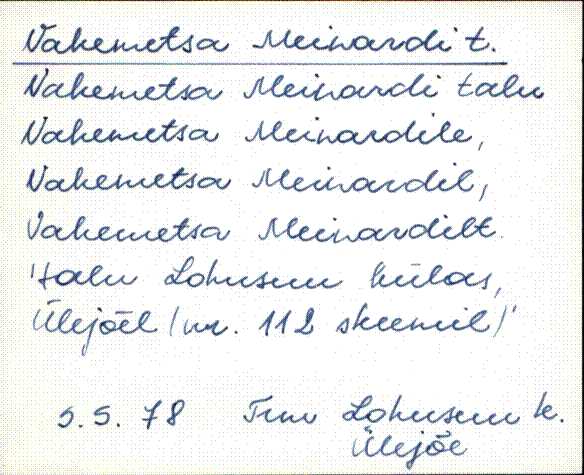 Vahemetsa Meinardi t.
Vahemetsa Meinardi talu
Vahemetsa Meinardile,
Vahemetsa Meinardil,
Vahemetsa Meinardilt.
'talu Lohusuu külas,
Ülejõel (nr. 112 skeemil)'
5.5.78 Trm Lohusuu k.
Ülejõe